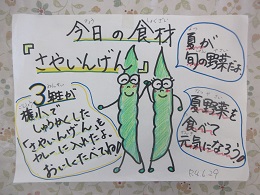 今日の食材
『さやいんげん』
夏が
旬の野菜だよ。
3年生が
種小で
しゅうかくした
「さやいんげん」を
カレーに入れたよ。
おいしくたべてね!!
夏野菜を
食べて
元気になろう!!
R4.6.29